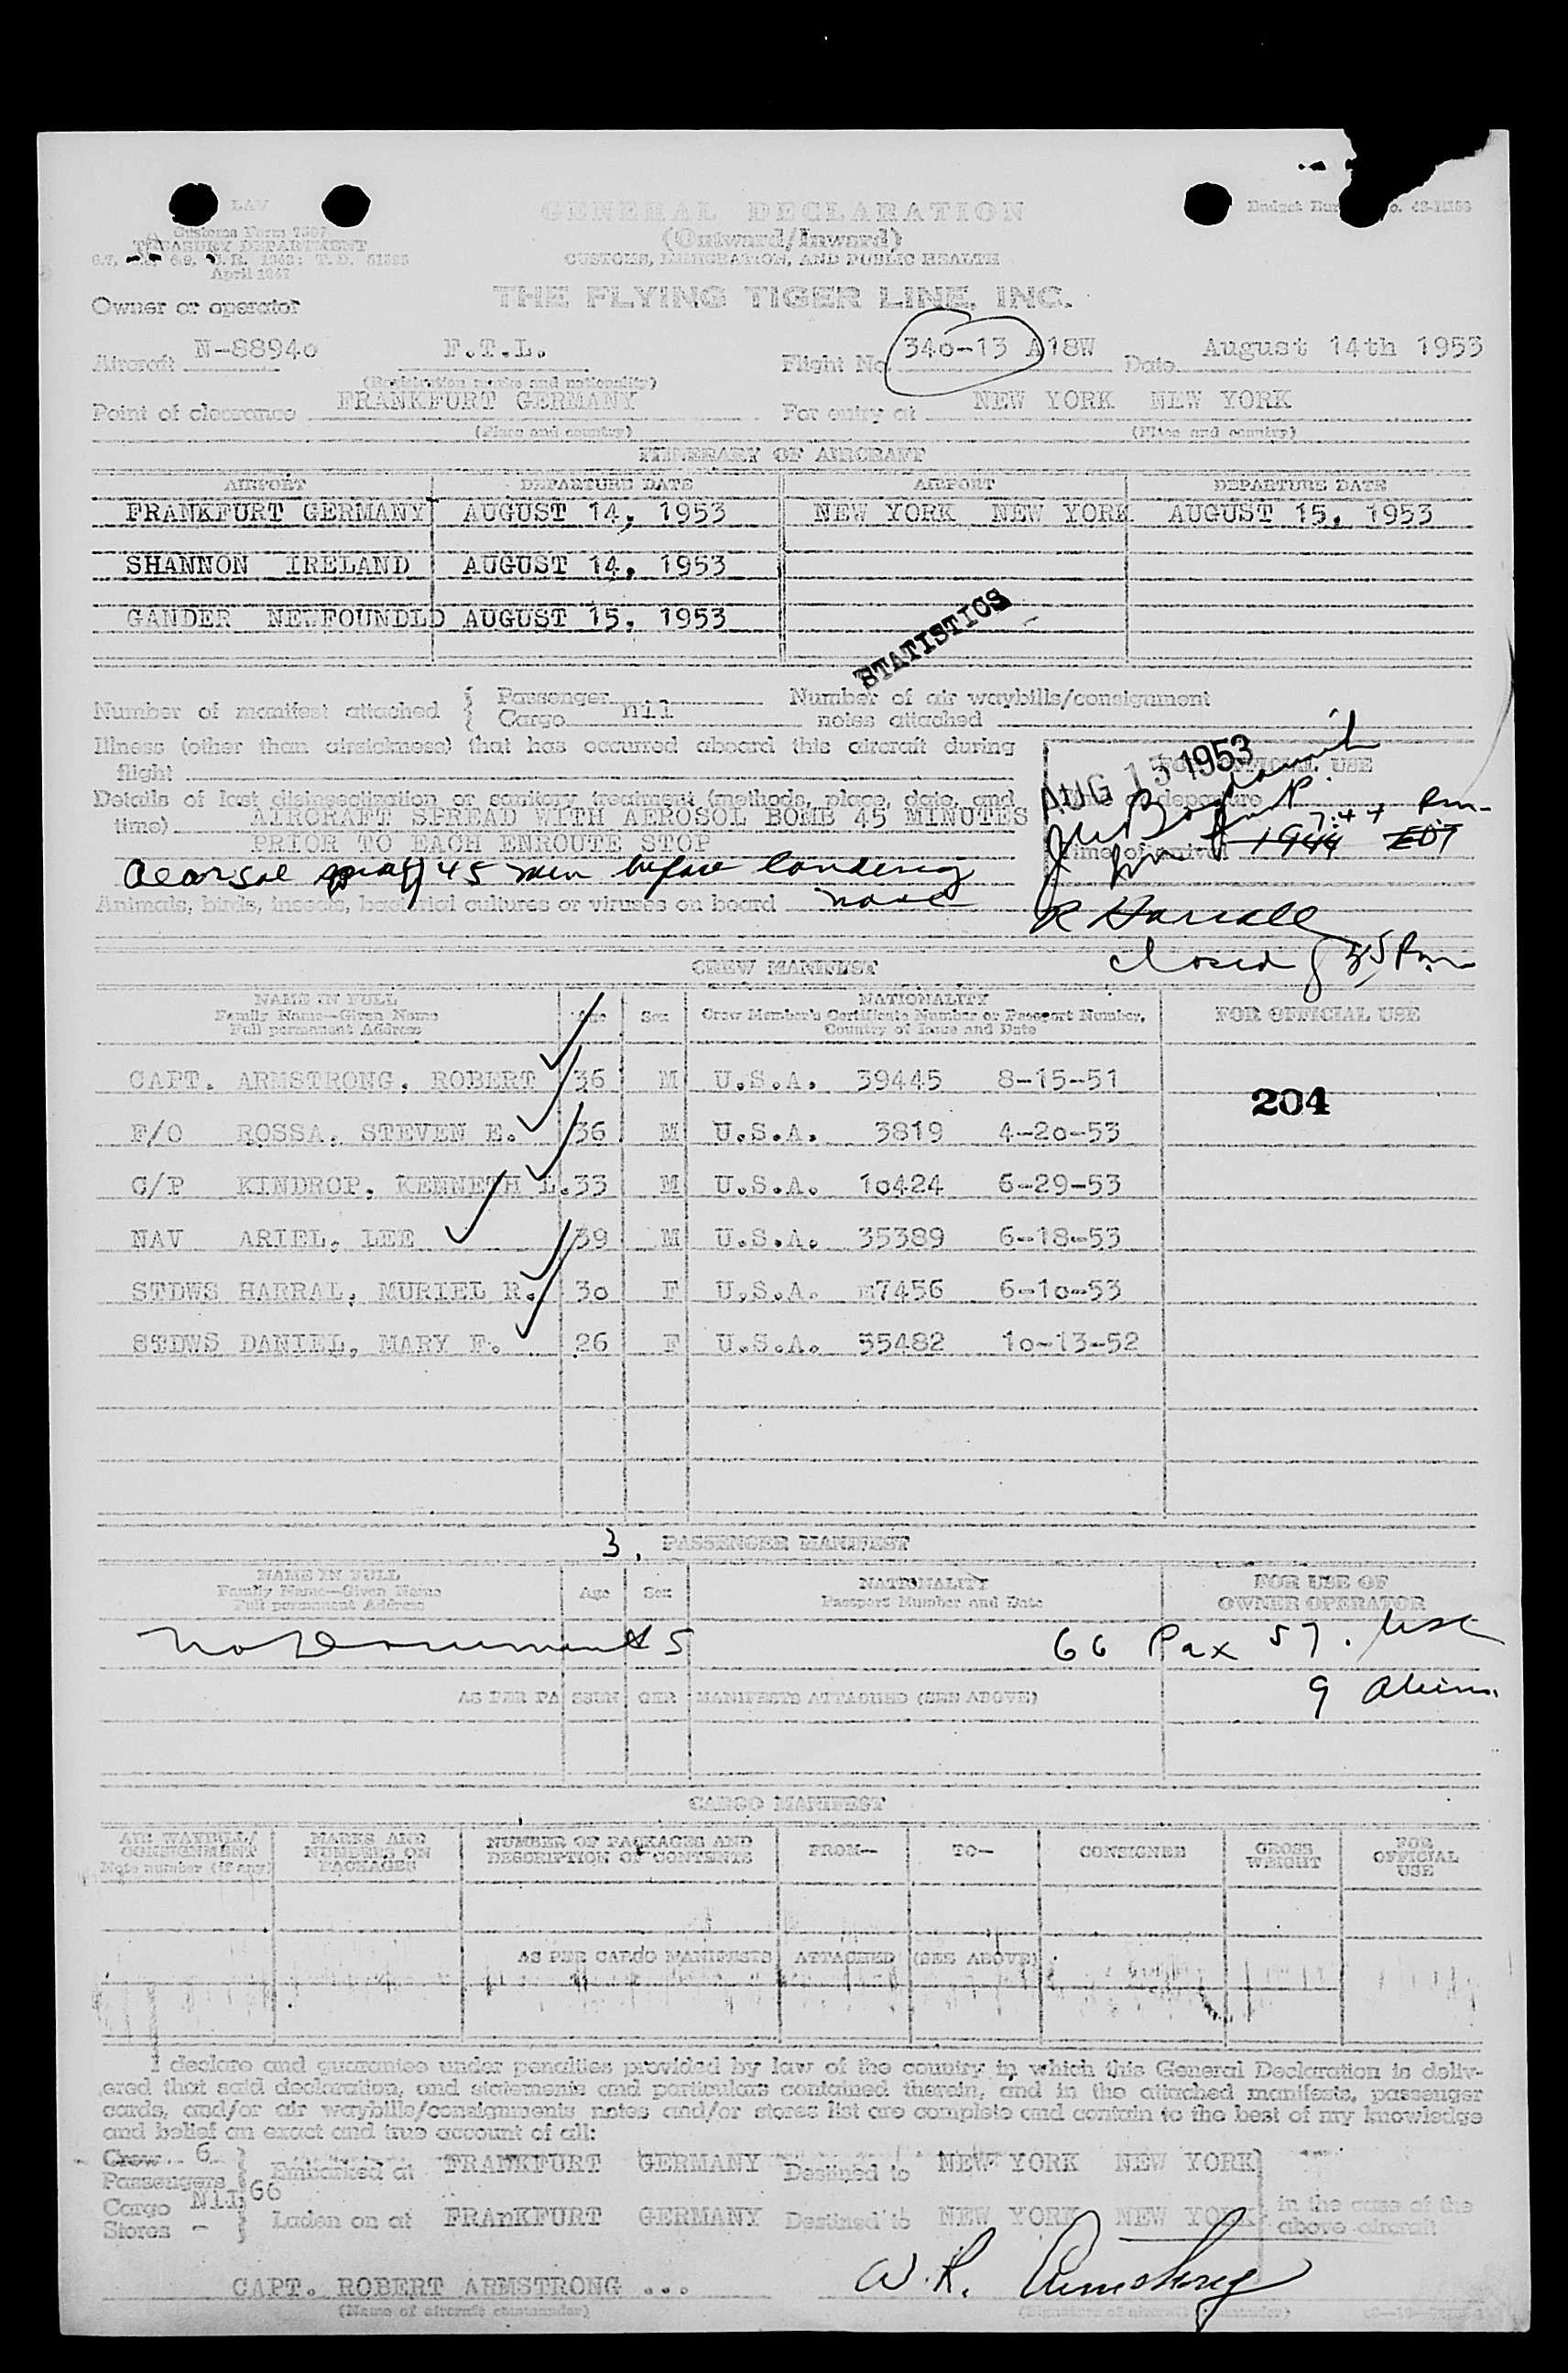 LAW
GENERAL DECLARATION
Customs Form 7507
TREASURY DEPARTMENT
April 1947
(Outward/Inward)
CUSTOMS, IMMIGRATION, AND PUBLIC HEALTH
THE FLYING TIGER LINE, INC.
Owner or operator
Aircraft N-8894o F.T.L. Flight No. 34o-13 A18W Date August 14th 1953
(Registration marks and nationality)
Point of clearance FRANKFURT GERMANY For entry at NEW YORK NEW YORK
(Place and country) (Place and country)
ITINERARY OF AIRCRAFT
AIRPORT DEPARTURE DATE AIRPORT DEPARTURE DATE
FRANKFURT GERMANY AUGUST 14, 1953 NEW YORK NEW YORK AUGUST 15, 1953
SHANNON IRELAND AUGUST 14, 1953
GANDER NEWFOUNDLD AUGUST 15, 1953
STATISTICS
Number of manifest attached Passenger Number of air waybills/consignment
Cargo nil notes attached
Illness (other than airsickness) that has occurred aboard this aircraft during
flight
FOR OFFICIAL USE
AUG 15 1953
Details of last disinsectization or sanitary treatment (methods, place, date, and
time) AIRCRAFT SPREAD WITH AEROSOL BOMB 45 MINUTES
PRIOR TO EACH ENROUTE STOP
Time of arrival 1944 EDT 7:44 Pm
aearsol spray 45 min before landing
Animals, birds, insects, bacterial cultures or viruses on board none
R Harrall
closed 8 35 Pm
CREW MANIFEST
NAME IN FULL
Family Name—Given Name
Full permanent Address
Age Sex
NATIONALITY
Crew Member's Certificate Number or Passport Number,
Country of Issue and Date
FOR OFFICIAL USE
CAPT. ARMSTRONG, ROBERT 36 M U.S.A. 39445 8-15-51
204
F/O ROSSA, STEVEN E. 36 M U.S.A. 3819 4-2o-53
C/P KINDROP, KENNETH L. 33 M U.S.A. 1o424 6-29-53
NAV ARIEL, LEE 39 M U.S.A. 35389 6-18-53
STDWS HARRAL, MURIEL R. 3o F U.S.A. m7456 6-1o-53
STDWS DANIEL, MARY F. 26 F U.S.A. 35482 1o-13-52
3. PASSENGER MANIFEST
NAME IN FULL
Family Name—Given Name
Full permanent Address
Age Sex
NATIONALITY
Passport Number and Date
FOR USE OF
OWNER OPERATOR
No Documents 66 Pax 57. USC
9 Aliens.
AS PER PASSENGER MANIFESTS ATTACHED (SEE ABOVE)
CARGO MANIFEST
AIR WAYBILL/
CONSIGNMENT
Note number (if any)
MARKS AND
NUMBERS ON
PACKAGES
NUMBER OF PACKAGES AND
DESCRIPTION OF CONTENTS
FROM— TO— CONSIGNEE
GROSS
WEIGHT
FOR
OFFICIAL
USE
AS PER CARGO MANIFESTS ATTACHED (SEE ABOVE)
I declare and guarantee under penalties provided by law of the country in which this General Declaration is deliv-
ered that said declaration, and statements and particulars contained therein, and in the attached manifests, passenger
cards, and/or air waybills/consignments notes and/or stores list are complete and contain to the best of my knowledge
and belief an exact and true account of all:
Crew 6
Passengers 66 Embarked at FRANKFURT GERMANY Destined to NEW YORK NEW YORK
Cargo NIL
Stores - Laden on at FRAnKFURT GERMANY Destined to NEW YORK NEW YORK
in the case of the
above aircraft
CAPT. ROBERT ARMSTRONG ... W. R. Armstrong
(Name of aircraft commander) (Signature of aircraft commander)